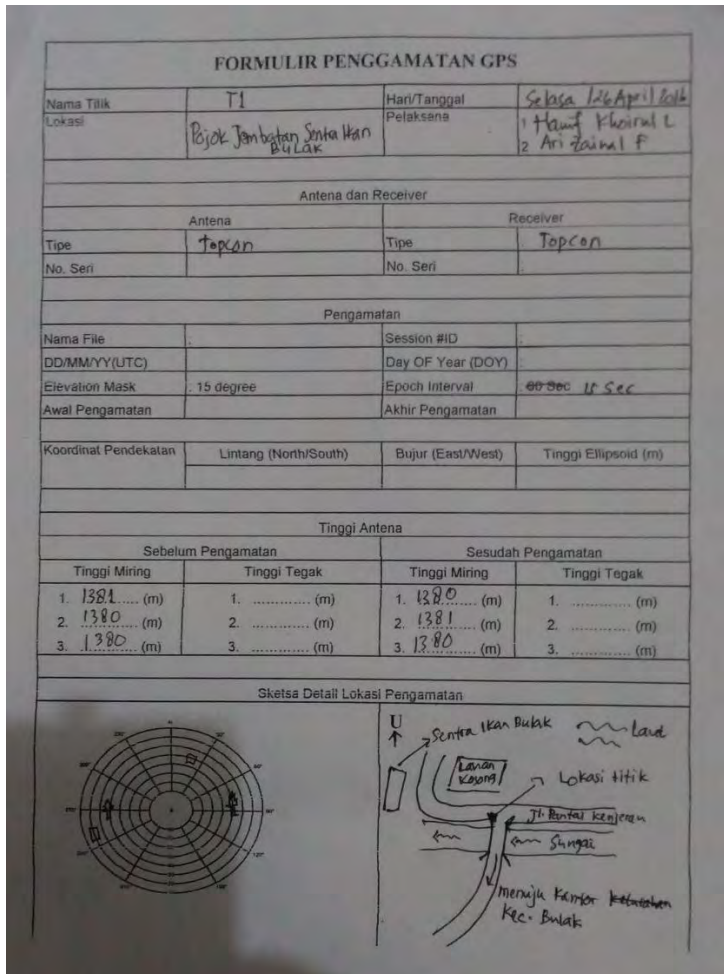 FORMULIR PENGGAMATAN GPS
Nama Titik T1 Hari/Tanggal Selasa /26 April 2016
Lokasi Pojok Jembatan Sentra Ikan Pelaksana 1 Hanif Khoirul L
BULAK 2 Ari Zainal F
Antena dan Receiver
Antena Receiver
Tipe Topcon Tipe Topcon
No. Seri No. Seri :
Pengamatan
Nama File : Session #ID :
DD/MM/YY(UTC) Day OF Year (DOY) :
Elevation Mask : 15 degree Epoch Interval : 60 Sec 15 Sec
Awal Pengamatan Akhir Pengamatan
Koordinat Pendekatan Lintang (North/South) Bujur (East/West) Tinggi Ellipsoid (m)
Tinggi Antena
Sebelum Pengamatan Sesudah Pengamatan
Tinggi Miring Tinggi Tegak Tinggi Miring Tinggi Tegak
1. 1381 (m) 1. ............. (m) 1. 1380 (m) 1. ............. (m)
2. 1380 (m) 2. ............. (m) 2. 1381 (m) 2. ............. (m)
3. 1380 (m) 3. ............. (m) 3. 1380 (m) 3. ............. (m)
Sketsa Detail Lokasi Pengamatan
U
Sentra Ikan Bulak Laut
Lahan
Kosong
Lokasi titik
Jl. Pantai Kenjeran
Sungai
menuju Kantor
Kec. Bulak